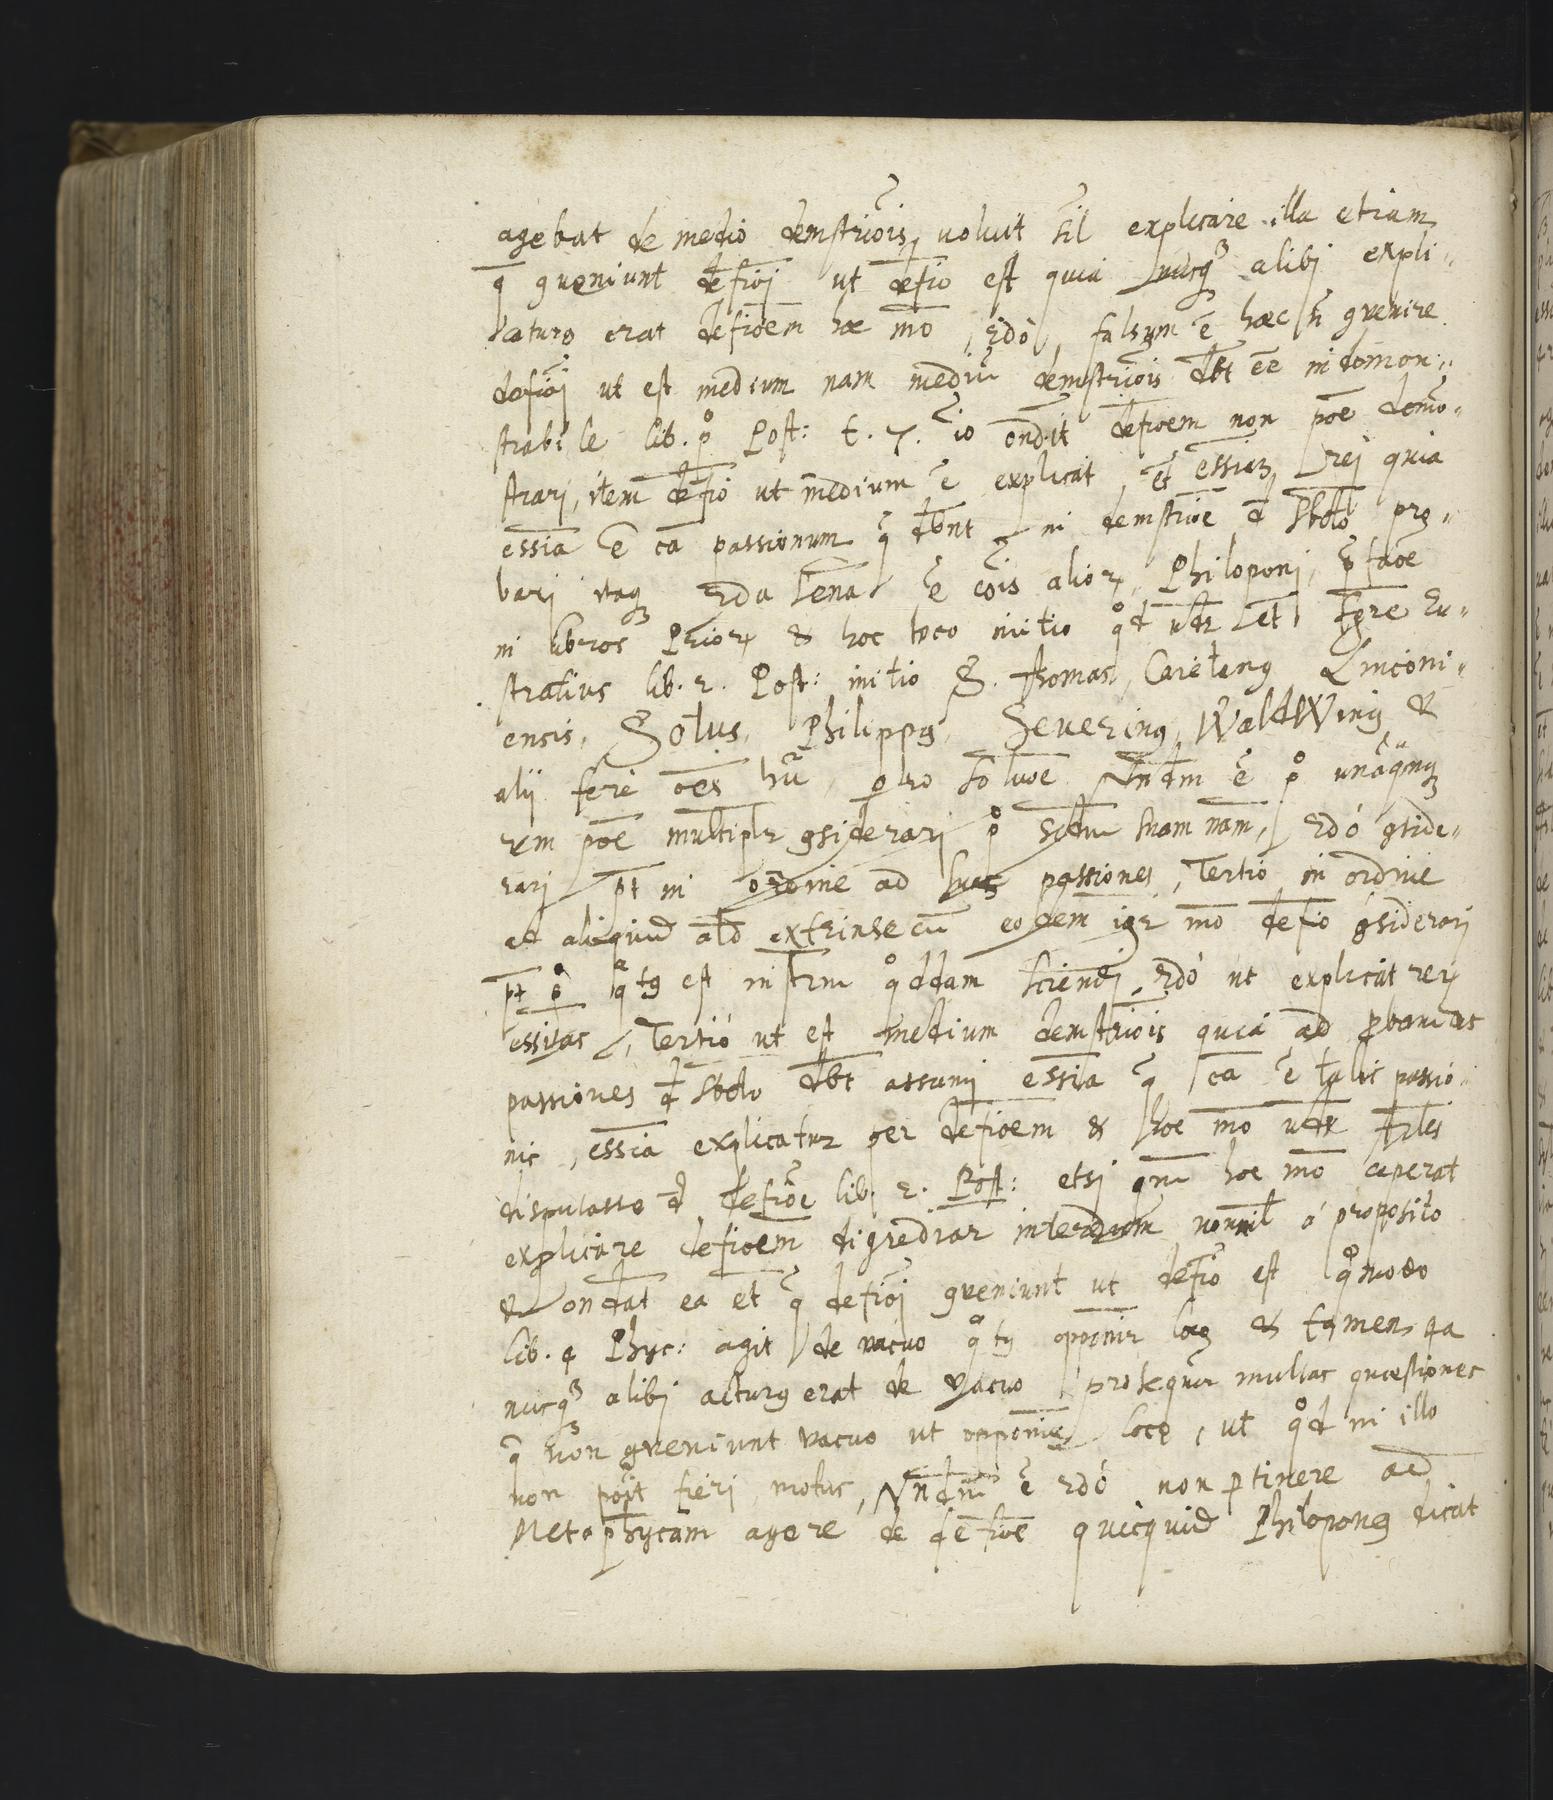 agebat de medio demstriōis, uoluit sīl explicare illa etiam
q̄ 9ueniunt defiōi ut defiō est quia nusq̃ alibi expli„
caturg erat defiōem hoc mō, 2dō, falsum ē haec n̄ 9uenire
defiōi ut est medium nam mediū demstriōis dbt ēe indemon„
strabile lib. pº Post: t. 7. iō ondit defioem non pōe demō„
strari, item defiō ut medium ē explicat, et essiaȝ rei quia
essia ē cā passionum q̄ dbnt in demstriōe d sbdo pro„
bari itaqȝ 2da sēna ē cōis alioꝝ, Philoponi, p̄faōe
in libros Prioꝝ & hoc loco initio qd̊ uidr et sgre Eu„
stratius lib. 2. Post: initio S. Thomas, Caietang Linconi„
ensis, Sotus, Philippg, Severing, Waldwing &
alij fere oēs hūt, pro soluōe Nndm ē pº unāqmqȝ
rem pōe multiplr 9siderari pº scdm suam nam, 2dó 9side„
rari pt in ordine ad suas passiones, Tertiò in ordine
ad aliquid ald extrinsecū eodem igr mō defiō 9siderari
pt pº q̄tg est instrm qddam sciendi, 2dó ut explicat rei
essias, Tertiò ut est medium demstriōis quia ad probandas
passiones d sbdo dbt assumi essia q̄ cā ē talis passio„
nis, essia explicatur per defioem & hoc mō uidr Arles
disputasse d defiōe lib. 2. Post: etsi qm̄ hoc mō ceperat
explicare defioem digrediar interdum nonnil á proposito
& ondat ea et q̄ defiōi 9ueniunt ut defiō est quomodo
lib. 4 Phyc: agit de vacuo q̄tg opponir locg & tamen qa
nusq̃ alibi acturg erat de vacuo prosequir multas quaestiones
q̄ non 9ueniunt vacuo ut opponir loco, ut qd̊ in illo
non possit fieri motus, Nndm ē 2dó non ptinere ad
Metaphycam agere de defiōe quicquid Philopong dicat